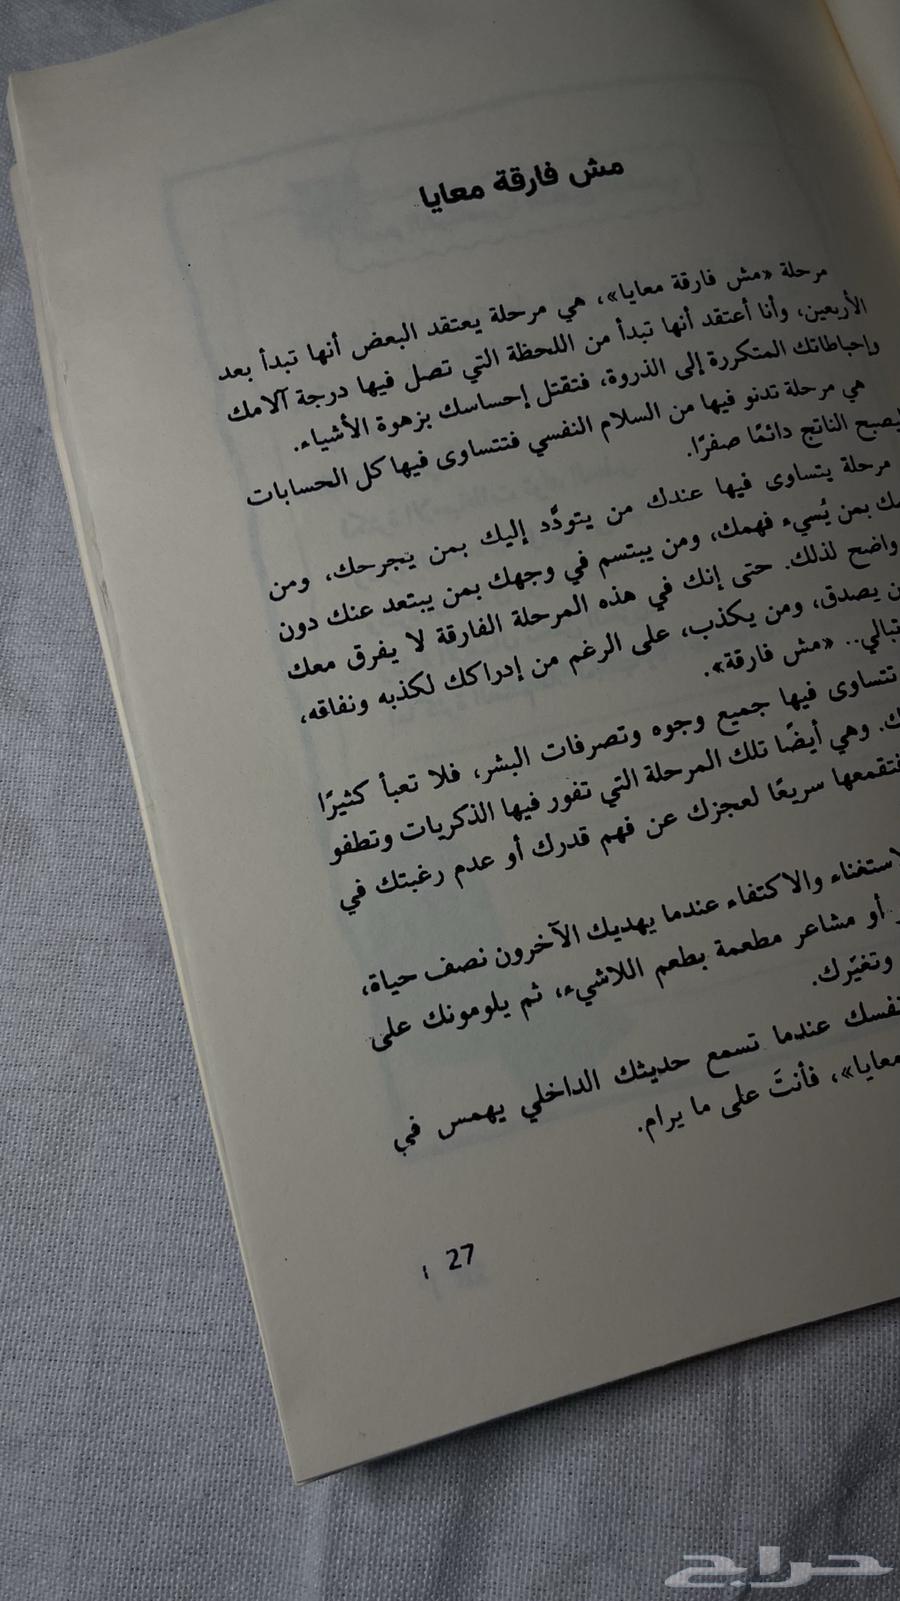 مش فارقة معايا
مرحلة «مش فارقة معايا»، هي مرحلة يعتقد البعض أنها تبدأ بعد
الأربعين، وأنا أعتقد أنها تبدأ من اللحظة التي تصل فيها درجة آلامك
وإحباطاتك المتكررة إلى الذروة، فتقتل إحساسك بزهوة الأشياء.
هي مرحلة تدنو فيها من السلام النفسي فتتساوى فيها كل الحسابات
ليصبح الناتج دائمًا صفرًا.
مرحلة يتساوى فيها عندك من يتودَّد إليك بمن يجرحك، ومن
بمن يُسيء فهمك، ومن يبتسم في وجهك بمن يبتعد عنك دون
واضح لذلك. حتى إنك في هذه المرحلة الفارقة لا يفرق معك
يصدق، ومن يكذب، على الرغم من إدراكك لكذبه ونفاقه،
تبالي.. «مش فارقة».
تتساوى فيها جميع وجوه وتصرفات البشر، فلا تعبأ كثيرًا
وهي أيضًا تلك المرحلة التي تفور فيها الذكريات وتطفو
فتقمعها سريعًا لعجزك عن فهم قدرك أو عدم رغبتك في
والاكتفاء عندما يهديك الآخرون نصف حياة،
أو مشاعر مطعمة بطعم اللاشيء، ثم يلومونك على
وتغيّرك.
عندما تسمع حديثك الداخلي يهمس في
معايا»، فأنتَ على ما يرام.
27
حراج